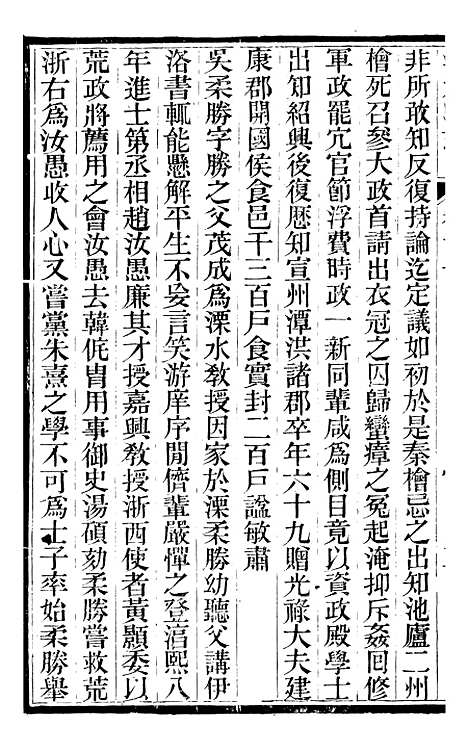 非所敢知反復持論迄定議如初於是秦檜忌之出知池廬二州
檜死召參大政首請出衣冠之囚歸蠻瘴之冤起淹抑斥姦回修
軍政罷冗官節浮費時政一新同輩咸爲側目竟以資政殿學士
出知紹興後復歴知宣州潭洪諸郡卒年六十九贈光祿大夫建
康郡開國侯食邑千三百戸食實封二百戸諡敏肅
吳柔勝字勝之父茂成爲溧水敎授因家於溧柔勝幼聽父講伊
洛書輒能懸解平生不妄言笑游庠序閒儕輩嚴憚之登淳熙八
年進士第丞相趙汝愚廉其才授嘉興敎授浙西使者黃顥委以
荒政將薦用之會汝愚去韓侂胄用事御史湯碩劾柔勝嘗救荒
浙右爲汝愚收人心又嘗黨朱熹之學不可爲士子率始柔勝舉